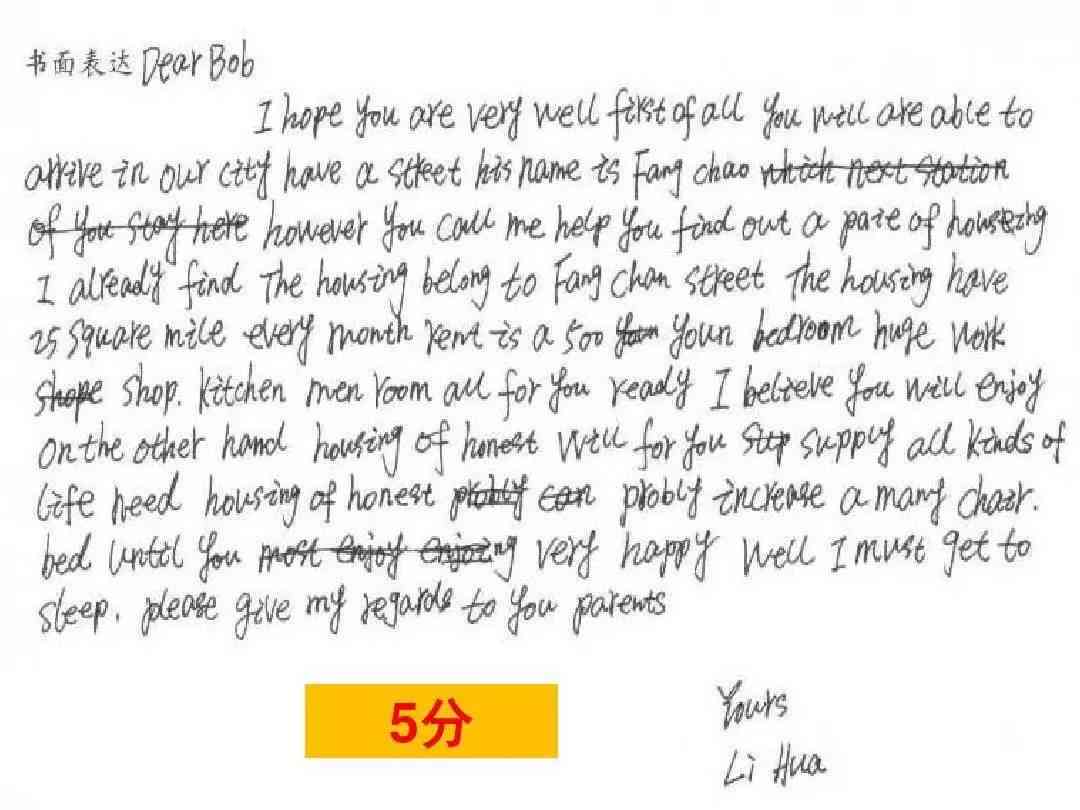 书面表达 Dear Bob
I hope you are very well first of all you will are able to
arrive in our city have a street his name is Fang chao which next station
of you stay here however you call me help you find out a paie of housing
I already find The housing belong to Fang chan street The housing have
25 square mile every month rent is a 500 youn bedroom huge work
shope shop. kitchen men room all for you ready I believe you will enjoy
on the other hand housing of honest will for you sup supply all kinds of
life need housing of honest probly can probly increase a many chair.
bed until you most enjoy enjoing very happy well I must get to
sleep. please give my regards to you parents
5分
Yours
Li Hua